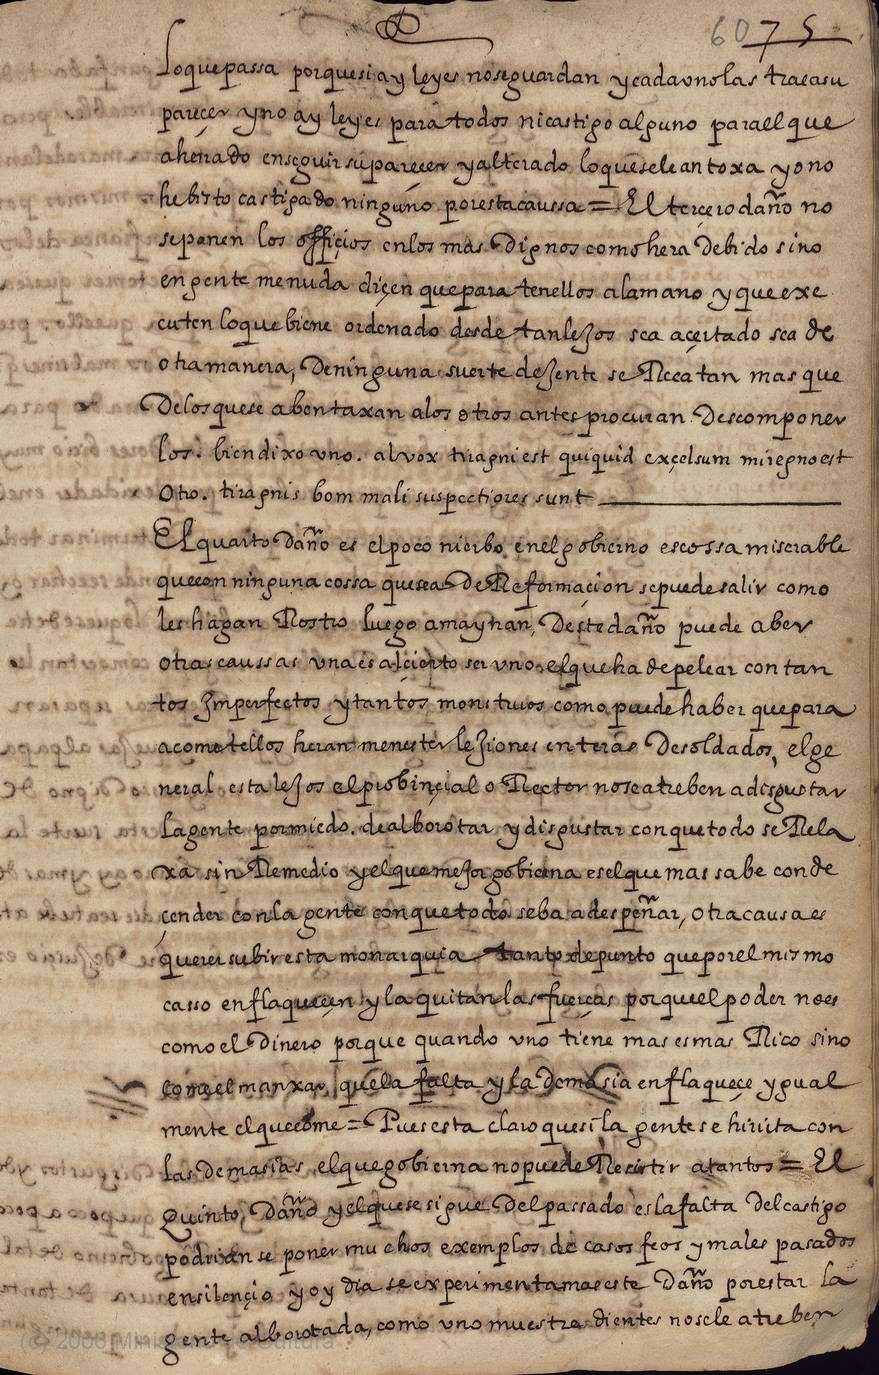 60 75
Loque passa porque si ay leyes nose guardan y cada uno las trae a su
parecer y no ay leyes para todos ni castigo alguno para el que
a herrado en seguir su parecer y alterado lo que se le antoxa y o no
he bisto castigado ninguno por esta caussa = El tercero daño no
se ponen los offiçios en los mas dignos como hera debido sino
en gente menuda diçen que para tenellos a la mano y que exe
cuten lo que biene ordenado desde tan lejos sea açertado sea de
otra manera, De ninguna suerte de jente se Recatan mas que
De los que se abentaxan a los otros antes procuran Descomponer
los. bien dixo uno. al vox tiragni est quiquid exçelsum in regno est
Otro. tiragnis boni mali suspectiores sunt
El quarto Daño es el poco nierbo en el gobierno es cossa miserable
que con ninguna cossa que sea De Reformaçion se puede salir como
les hagan Rostro luego amaynan, Deste daño puede aber
otras caussas una es al çierto ser uno el que ha de pelear con tan
tos Imperfectos y tantos monstruos como puede haber que para
acometellos heran menester lejiones enteras De soldados, el ge
neral esta lejos el probinçial o Rector no se atreben a disgustar
la gente por miedo. de alborotar y disgustar con que todo se Rela
xa sin Remedio y el que mejor gobierna es el que mas sabe conde
çender con la gente con que todo se ba a despeñar, Otra causa es
querer subir esta monarquia tanto de punto que por el mismo
casso enflaqueçen y la quitan las fuerças porque el poder no es
como el Dinero porque quando uno tiene mas es mas Rico sino
como el manxar, que la falta y la Demasia enflaqueçe ygual
mente el que come = Pues esta claro que si la gente se hirrita con
las Demasias el que gobierna no puede Resistir a tantos = El
Quinto, Daño y el que se sigue Del passado es la falta Del castigo
podrianse poner muchos exemplos de casos feos y males pasados
en silençio y oy dia se experimenta mas este Daño por estar la
gente alborotada, como uno muestra dientes no se le atreben